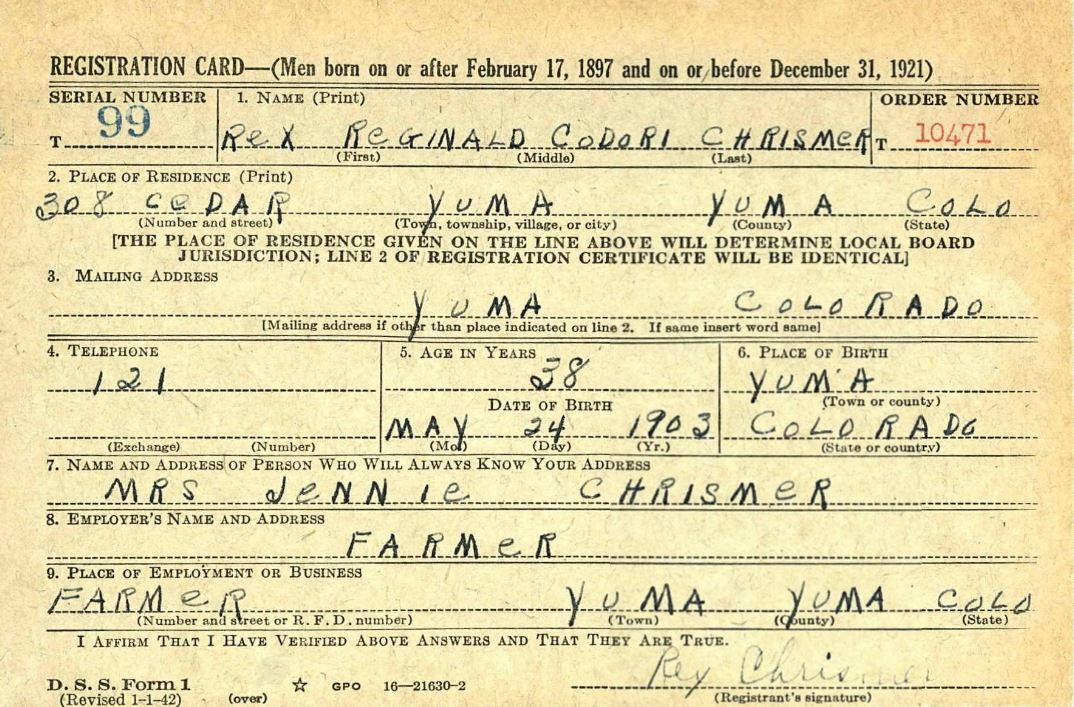 REGISTRATION CARD—(Men born on or after February 17, 1897 and on or before December 31, 1921)
SERIAL NUMBER 1. NAME (Print) ORDER NUMBER
T 99 REX REGINALD CODORI CHRISMER T 10471
(First) (Middle) (Last)
2. PLACE OF RESIDENCE (Print)
308 CEDAR YUMA YUMA COLO
(Number and street) (Town, township, village, or city) (County) (State)
[THE PLACE OF RESIDENCE GIVEN ON THE LINE ABOVE WILL DETERMINE LOCAL BOARD
JURISDICTION; LINE 2 OF REGISTRATION CERTIFICATE WILL BE IDENTICAL]
3. MAILING ADDRESS
YUMA COLORADO
[Mailing address if other than place indicated on line 2. If same insert word same]
4. TELEPHONE 5. AGE IN YEARS 6. PLACE OF BIRTH
121 38 YUMA
DATE OF BIRTH (Town or county)
MAY 24 1903 COLORADO
(Exchange) (Number) (Mo.) (Day) (Yr.) (State or country)
7. NAME AND ADDRESS OF PERSON WHO WILL ALWAYS KNOW YOUR ADDRESS
MRS JENNIE CHRISMER
8. EMPLOYER'S NAME AND ADDRESS
FARMER
9. PLACE OF EMPLOYMENT OR BUSINESS
FARMER YUMA YUMA COLO
(Number and street or R. F. D. number) (Town) (County) (State)
I AFFIRM THAT I HAVE VERIFIED ABOVE ANSWERS AND THAT THEY ARE TRUE.
Rex Chrismer
D. S. S. Form 1 GPO 16—21630-2
(Revised 1-1-42) (over) (Registrant's signature)